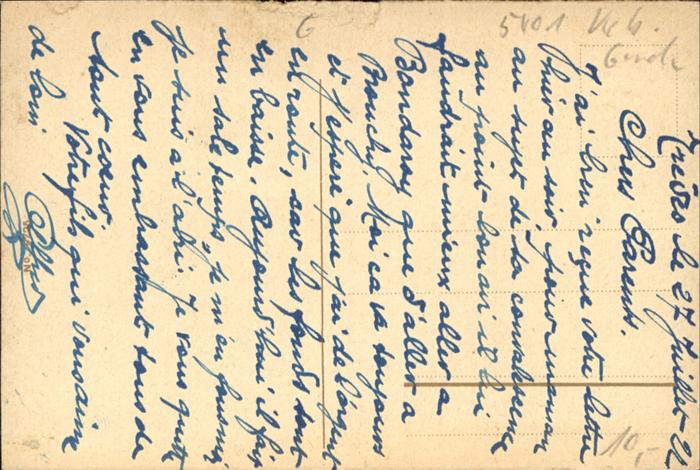 Trèves le 27 Juillet
Chers Parents.
J'ai bien reçue votre lettre
hier au soir, pour maman
au sujet de sa convalescence
au point lonari il lui
faudrait mieux aller a
Bondaroy que d'aller a
Bouchy. Moi ca va toujours
et j'espère que j'ai de l'argent
en route, car les fonds sont
en baisse. Aujourd'hui il fait
un sale temps, je m'en
Je suis a l'abri. Je vous quitte
en vous embrassant tous de
tout coeur.
Votre fils qui vous aime
de loin
5401
10,-